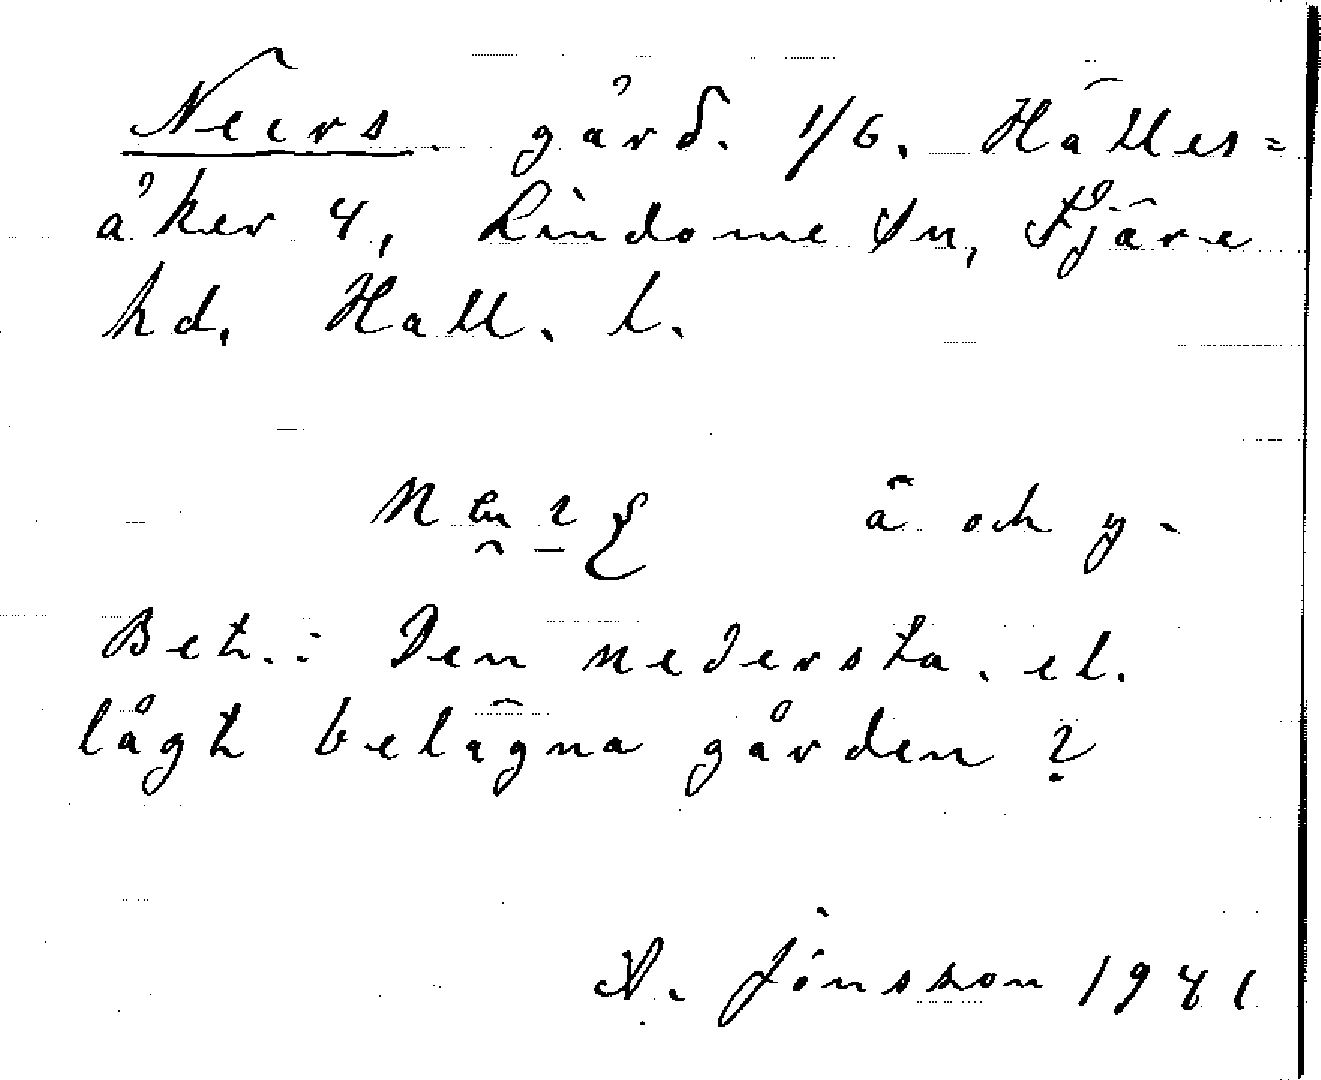 Neers. gård. 1/6. Hälles=
åker 4, Lindome sn, Fjäre
hd. Hall. l.
ä och y.
Bet.: Den nedersta. el.
lågt belägna gården?
A. Jönsson 1941